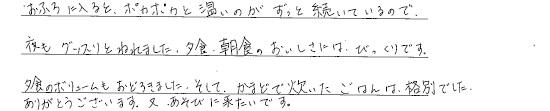 おふろに入ると、ポカポカと温いのがずっと続いているので、
夜もグッスリとねれました。夕食、朝食のおいしさには、びっくりです。
夕食のボリュームもおどろきました。そして、かまどで炊いたごはんは、格別でした。
ありがとうございます。又、あそびに来たいです。